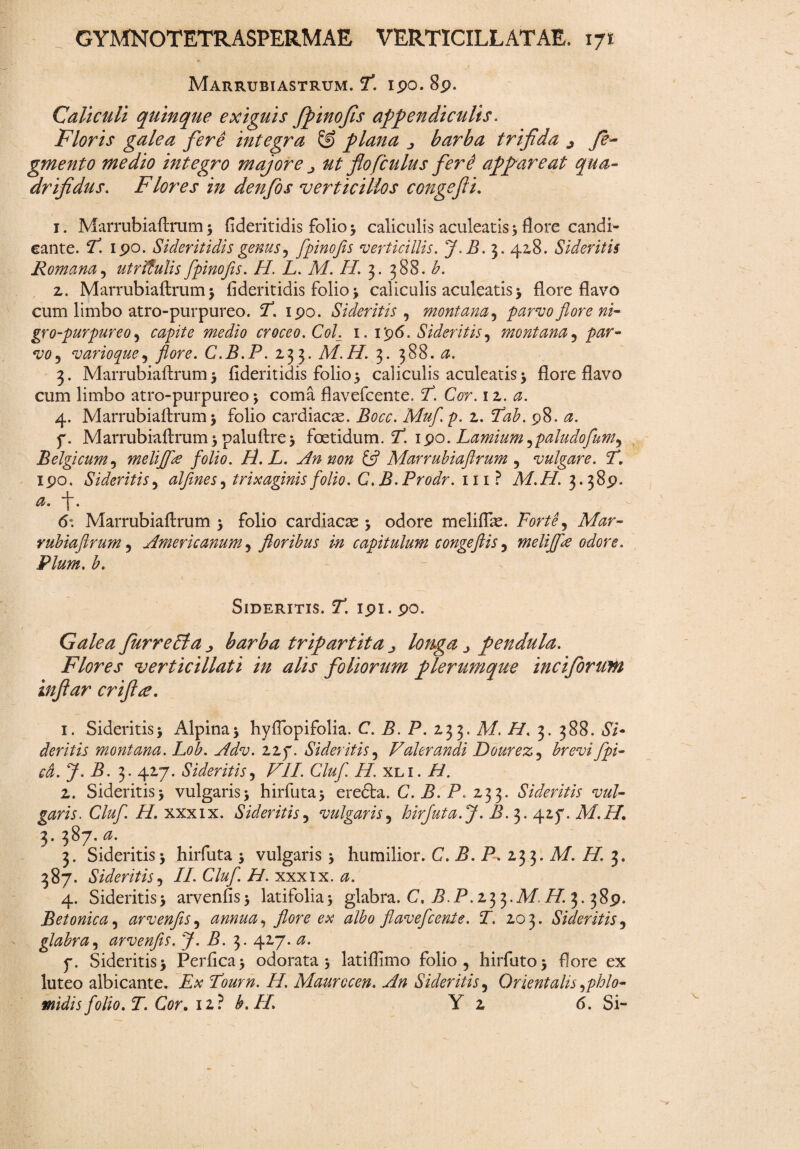 GYMNOTETRASPERMAE VERTICILLATAE. 171
MARRUBIASTRUM. T. 190. 89.
Caliculi quinque exiguis ſpinoſis appendiculis.
Floris galea ferè integra & plana, barba trifida, ſe-
gmento medio integro majore, ut floſculus ferè appareat qua-
drifidus. Flores in denſos verticillos congeſti.
1. Marrubiaſtrum; ſideritidis folio; caliculis aculeatis; flore candi-
cante. T. 190. Sideritidis genus, ſpinoſis verticillis. J. B. 3. 428. Sideritis
Romana, utriculis ſpinoſis. H. L. M. H. 3. 388. b.
2. Marrubiaſtrum; ſideritidis folio; caliculis aculeatis; flore flavo
cum limbo atro-purpureo. T. 190. Sideritis, montana, parvo flore ni-
gro-purpureo, capite medio croceo. Col. 1. 196. Sideritis, montana, par-
vo, varioque, flore. C.B.P. 233. M.H. 3. 388. a.
3. Marrubiaſtrum; ſideritidis folio; caliculis aculeatis; flore flavo
cum limbo atro-purpureo; comâ flaveſcente. T. Cor. 12. a.
4. Marrubiaſtrum; folio cardiacæ. Bocc. Muſ. p. 2. Tab. 98. a.
5. Marrubiaſtrum; paluſtre; fœtidum. T. 190. Lamium, paludoſum,
Belgicum, meliſſæ folio. H. L. An non & Marrubiaſtrum, vulgare. T.
190. Sideritis, alſines, trixaginis folio. C.B.Prodr. 111? M.H. 3.389.
a. †.
6. Marrubiaſtrum; folio cardiacæ; odore meliſſæ. Fortè, Mar-
rubiaſtrum, Americanum, floribus in capitulum congeſtis, meliſſæ odore.
Plum. b.
SIDERITIS. T. 191. 90.
Galea ſurrecta, barba tripartita, longa, pendula.
Flores verticillati in alis foliorum plerumque inciſorum
inſtar criſtæ.
1. Sideritis; Alpina; hyſſopifolia. C. B. P. 233. M. H. 3. 388. Si-
deritis montana. Lob. Adv. 225. Sideritis, Valerandi Dourez, brevi ſpi-
câ. J. B. 3. 427. Sideritis, VII. Cluſ. H. XLI. H.
2. Sideritis; vulgaris; hirſuta; erecta. C. B. P. 233. Sideritis vul-
garis. Cluſ. H. XXXIX. Sideritis, vulgaris, hirſuta. J. B. 3. 425. M.H.
3. 387. a.
3. Sideritis; hirſuta; vulgaris; humilior. C. B. P. 233. M. H. 3.
387. Sideritis, II. Cluſ. H. XXXIX. a.
4. Sideritis; arvenſis; latifolia; glabra. C. B.P.233.M.H.3.389.
Betonica, arvenſis, annua, flore ex albo flaveſcente. T. 203. Sideritis,
glabra, arvenſis. J. B. 3. 427. a.
5. Sideritis; Perſica; odorata; latiſſimo folio, hirſuto; flore ex
luteo albicante. Ex Tourn. H. Maurocen. An Sideritis, Orientalis, phlo-
midis folio. T. Cor. 12? b. H. Y 2 6. Si-